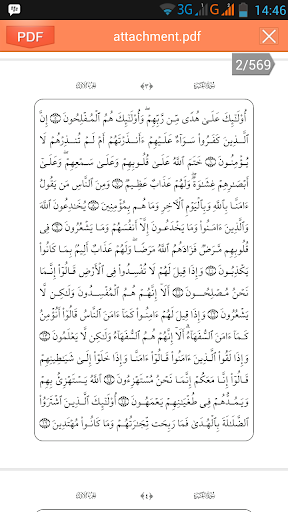 14:46
3G
PDF
attachment.pdf
2/569
سورة البقرة ٣ الجزء الأول
أُوْلَٰٓئِكَ عَلَىٰ هُدٗى مِّن رَّبِّهِمۡۖ وَأُوْلَٰٓئِكَ هُمُ ٱلۡمُفۡلِحُونَ ۝٥ إِنَّ
ٱلَّذِينَ كَفَرُواْ سَوَآءٌ عَلَيۡهِمۡ ءَأَنذَرۡتَهُمۡ أَمۡ لَمۡ تُنذِرۡهُمۡ لَا
يُؤۡمِنُونَ ۝٦ خَتَمَ ٱللَّهُ عَلَىٰ قُلُوبِهِمۡ وَعَلَىٰ سَمۡعِهِمۡۖ وَعَلَىٰٓ
أَبۡصَٰرِهِمۡ غِشَٰوَةٞۖ وَلَهُمۡ عَذَابٌ عَظِيمٞ ۝٧ وَمِنَ ٱلنَّاسِ مَن يَقُولُ
ءَامَنَّا بِٱللَّهِ وَبِٱلۡيَوۡمِ ٱلۡأٓخِرِ وَمَا هُم بِمُؤۡمِنِينَ ۝٨ يُخَٰدِعُونَ ٱللَّهَ
وَٱلَّذِينَ ءَامَنُواْ وَمَا يَخۡدَعُونَ إِلَّآ أَنفُسَهُمۡ وَمَا يَشۡعُرُونَ ۝٩ فِي
قُلُوبِهِم مَّرَضٞ فَزَادَهُمُ ٱللَّهُ مَرَضٗاۖ وَلَهُمۡ عَذَابٌ أَلِيمُۢ بِمَا كَانُواْ
يَكۡذِبُونَ ۝١٠ وَإِذَا قِيلَ لَهُمۡ لَا تُفۡسِدُواْ فِي ٱلۡأَرۡضِ قَالُوٓاْ إِنَّمَا
نَحۡنُ مُصۡلِحُونَ ۝١١ أَلَآ إِنَّهُمۡ هُمُ ٱلۡمُفۡسِدُونَ وَلَٰكِن لَّا
يَشۡعُرُونَ ۝١٢ وَإِذَا قِيلَ لَهُمۡ ءَامِنُواْ كَمَآ ءَامَنَ ٱلنَّاسُ قَالُوٓاْ أَنُؤۡمِنُ
كَمَآ ءَامَنَ ٱلسُّفَهَآءُۗ أَلَآ إِنَّهُمۡ هُمُ ٱلسُّفَهَآءُ وَلَٰكِن لَّا يَعۡلَمُونَ ۝١٣
وَإِذَا لَقُواْ ٱلَّذِينَ ءَامَنُواْ قَالُوٓاْ ءَامَنَّا وَإِذَا خَلَوۡاْ إِلَىٰ شَيَٰطِينِهِمۡ
قَالُوٓاْ إِنَّا مَعَكُمۡ إِنَّمَا نَحۡنُ مُسۡتَهۡزِءُونَ ۝١٤ ٱللَّهُ يَسۡتَهۡزِئُ بِهِمۡ
وَيَمُدُّهُمۡ فِي طُغۡيَٰنِهِمۡ يَعۡمَهُونَ ۝١٥ أُوْلَٰٓئِكَ ٱلَّذِينَ ٱشۡتَرَوُاْ
ٱلضَّلَٰلَةَ بِٱلۡهُدَىٰ فَمَا رَبِحَت تِّجَٰرَتُهُمۡ وَمَا كَانُواْ مُهۡتَدِينَ ۝١٦
سورة البقرة ٤ الجزء الأول